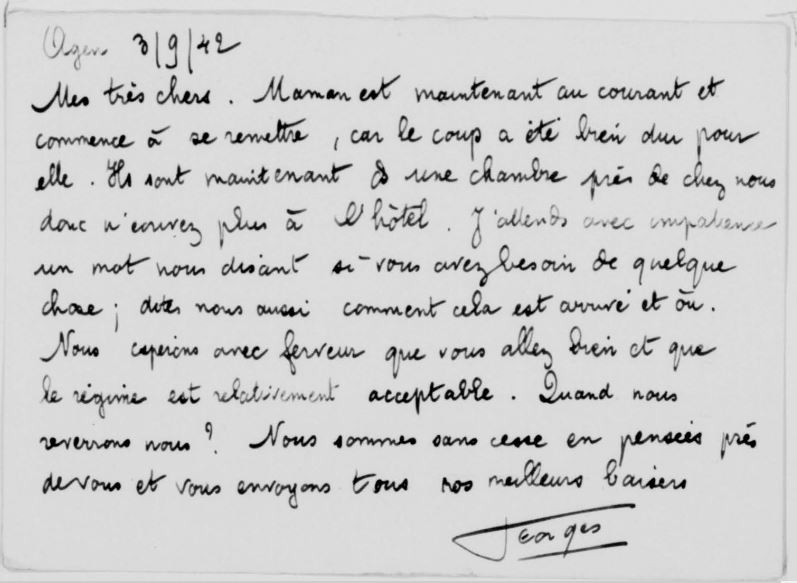 Agen 3/9/42
Mes très chers. Maman est maintenant au courant et
commence à se remettre, car le coup a été bien dur pour
elle. Ils sont maintenant ds une chambre près de chez nous
donc n'écrivez plus à l'hôtel. J'attends avec impatience
un mot nous disant si vous avez besoin de quelque
chose; dites nous aussi comment cela est arrivé et où.
Nous espérons avec ferveur que vous allez bien et que
le régime est relativement acceptable. Quand nous
reverrons nous? Nous sommes sans cesse en pensées près
de vous et vous envoyons tous nos meilleurs baisers
Georges